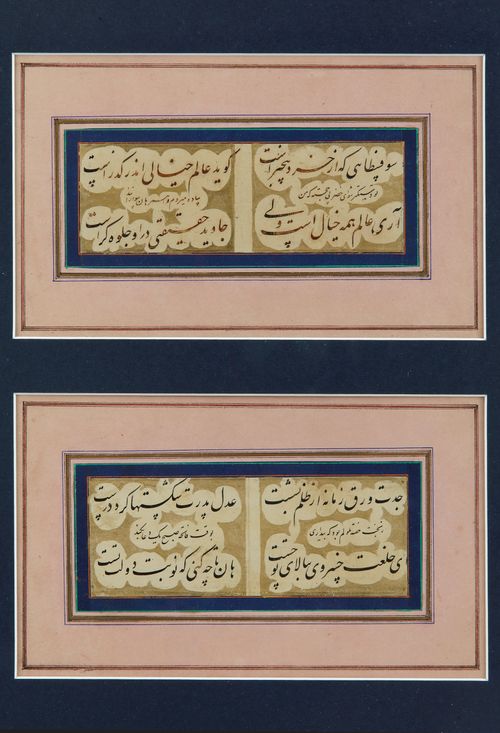 سوفسطائی که از خرد بیخبر است گوید عالم خیالی اندر گذر است
آری عالم همه خیال است ولی جاوید حقیقتی در او جلوه گر است
جدت ورق زمانه از ظلم بشست عدل پدرت شکستها کرد درست
بوقت فاتحه صبح یک دعا
ای خلعت خسروی ببالای تو چست هان تا چه کنی که نوبت دولت تست